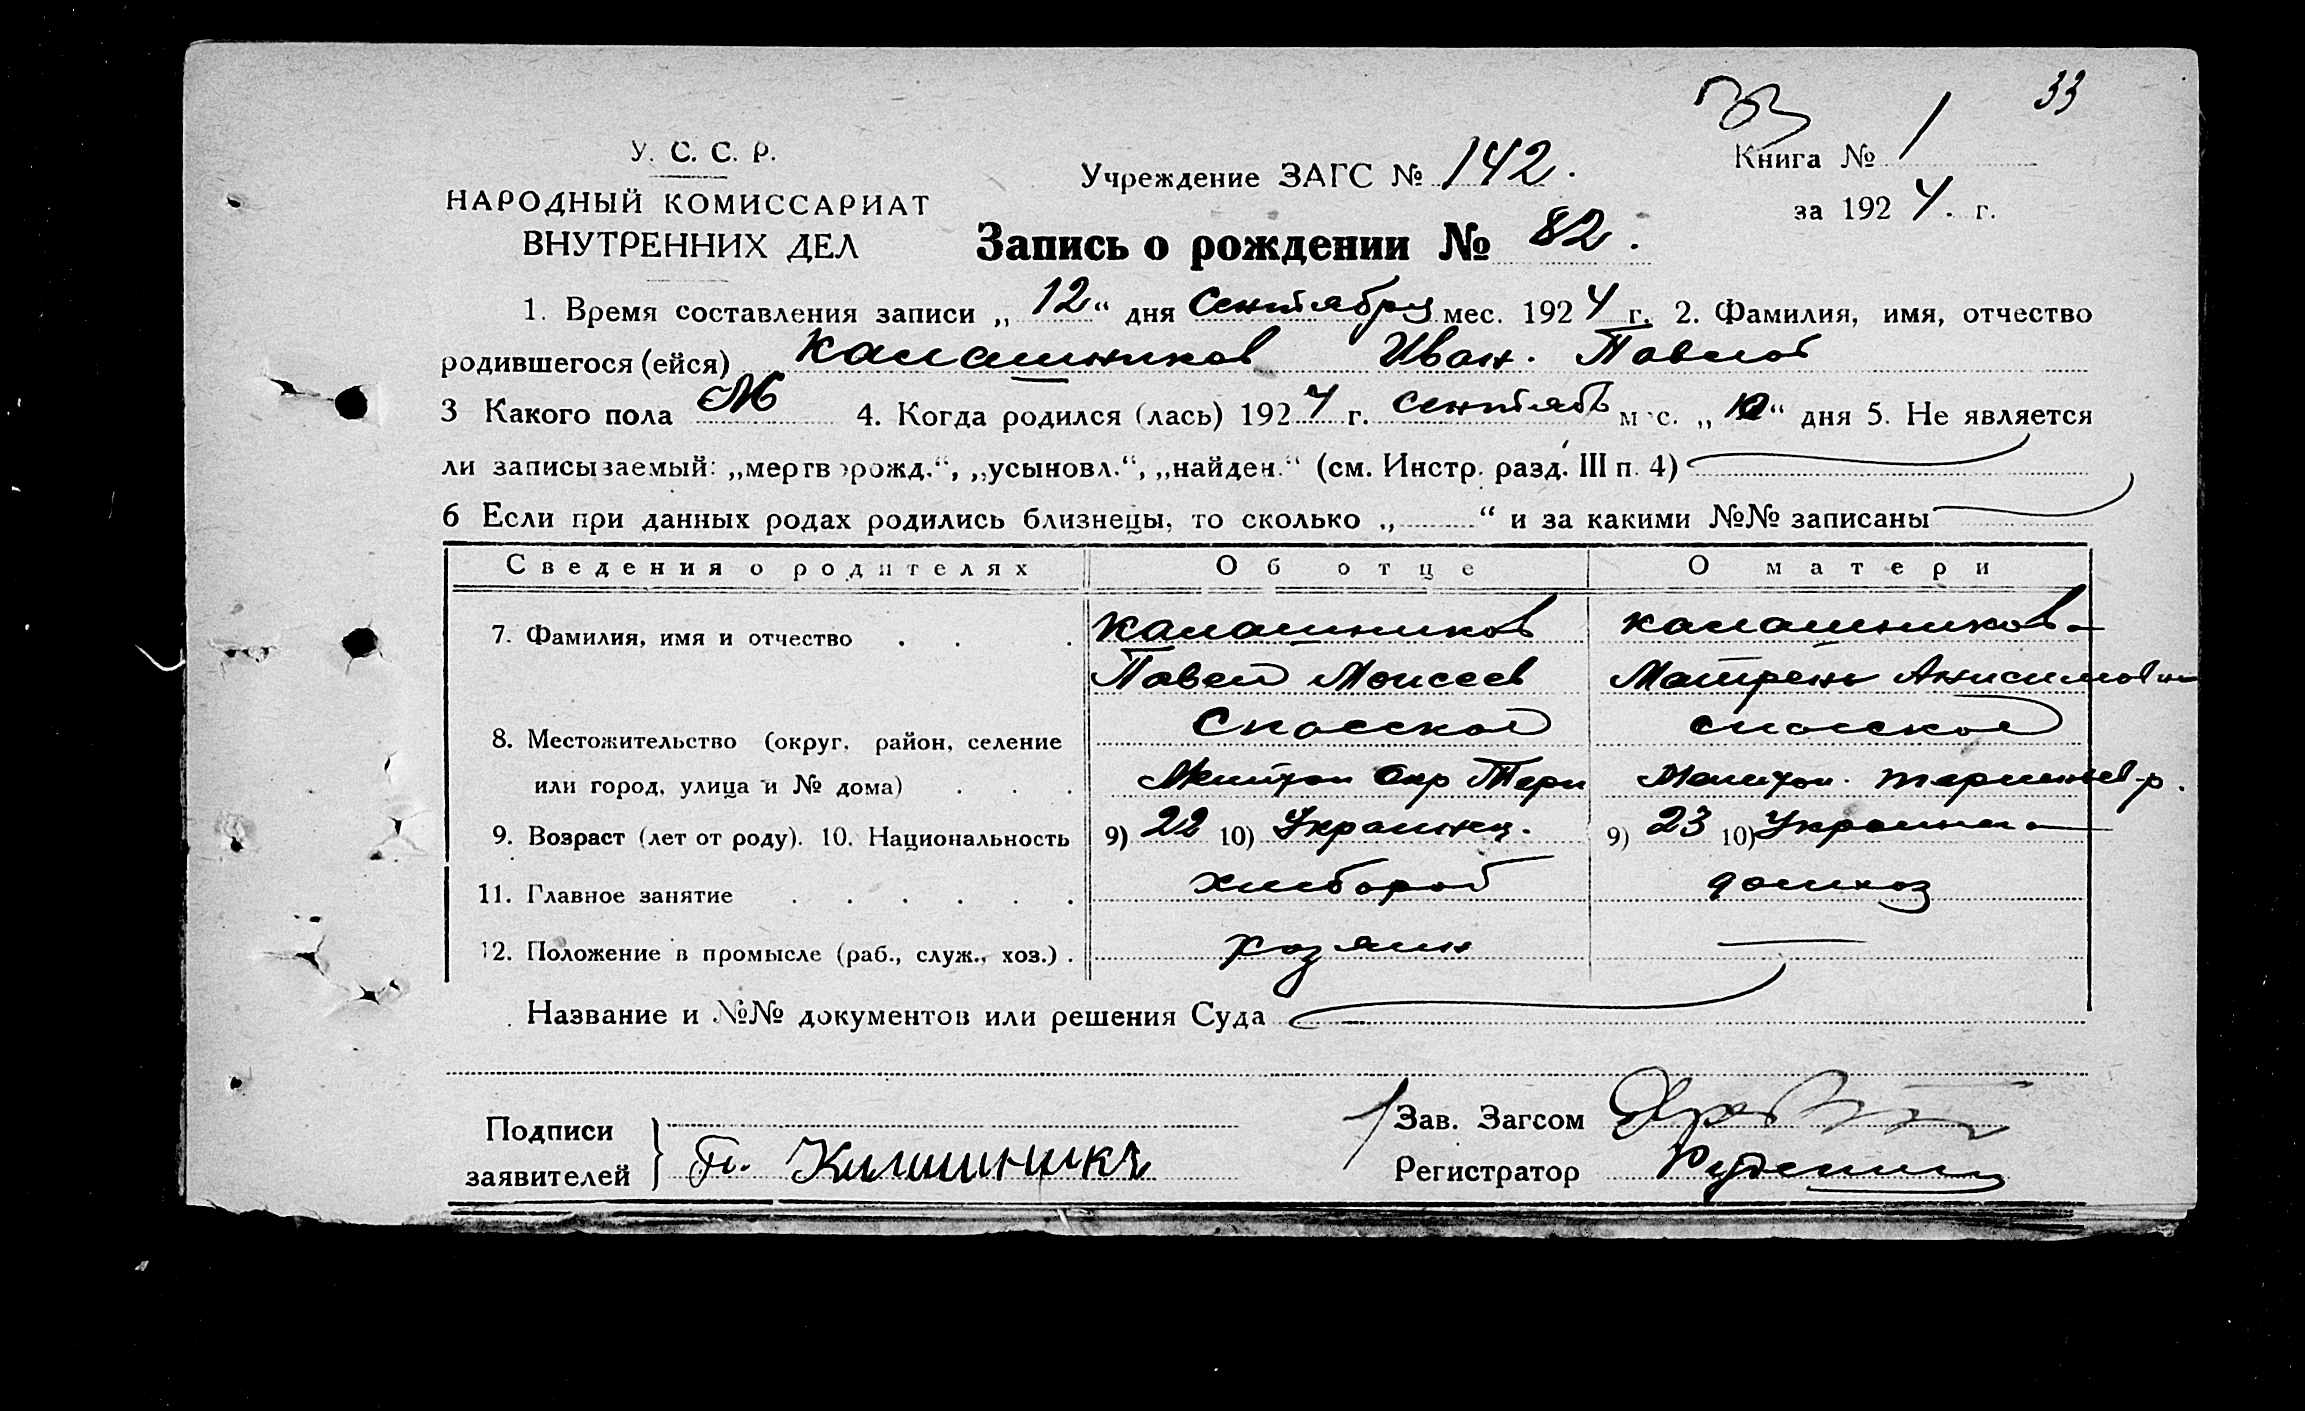 33
33
У. С. С. Р.
НАРОДНЫЙ КОМИССАРИАТ
ВНУТРЕННИХ ДЕЛ
Учреждение ЗАГС № 142.
Книга № 1
за 1924. г.
Запись о рождении № 82.
1. Время составления записи „12“ дня Сентября мес. 1924 г. 2. Фамилия, имя, отчество
родившегося (ейся) Калашников Иван. Павлов
3 Какого пола М 4. Когда родился (лась) 1924 г. Сентябь мес. „10“ дня 5. Не является
ли записываемый: „мертворожд.“, „усыновл.“, „найден.“ (см. Инстр. разд. III п. 4)
6 Если при данных родах родились близнецы, то сколько „ “ и за какими №№ записаны
Сведения о родителях Об отце О матери
7. Фамилия, имя и отчество . . . Калашников Калашникова
Павел Моисеев Матрена Анисимовна
8. Местожительство (округ, район, селение Спаское спаское
или город, улица и № дома) . . . Окр Терп
9. Возраст (лет от роду). 10. Национальность 9) 22 10) Украинц. 9) 23 10) Украинка
11. Главное занятие . . . . . . хлибороб домхоз
12. Положение в промысле (раб., служ., хоз.) . хозяин —
Название и №№ документов или решения Суда
Подписи
заявителей П.
Зав. Загсом
Регистратор